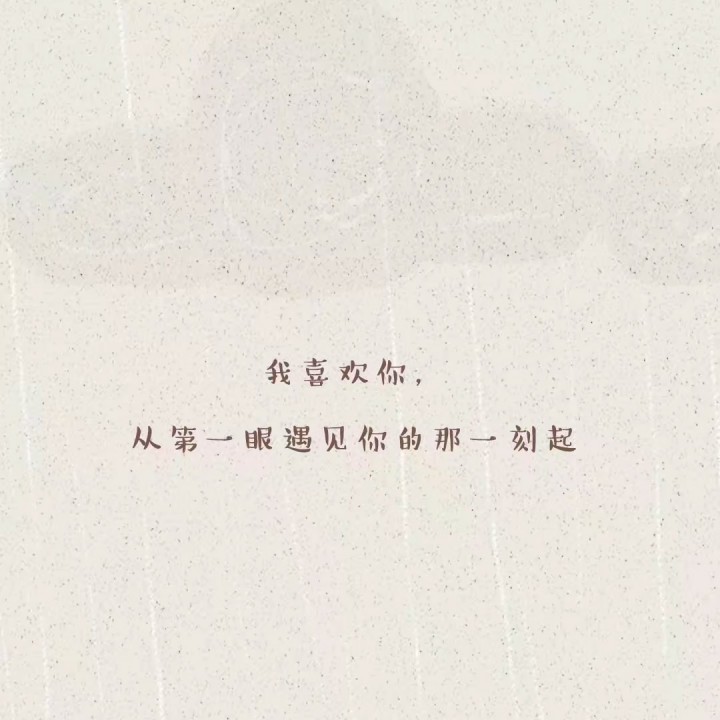 我喜欢你，
从第一眼遇见你的那一刻起